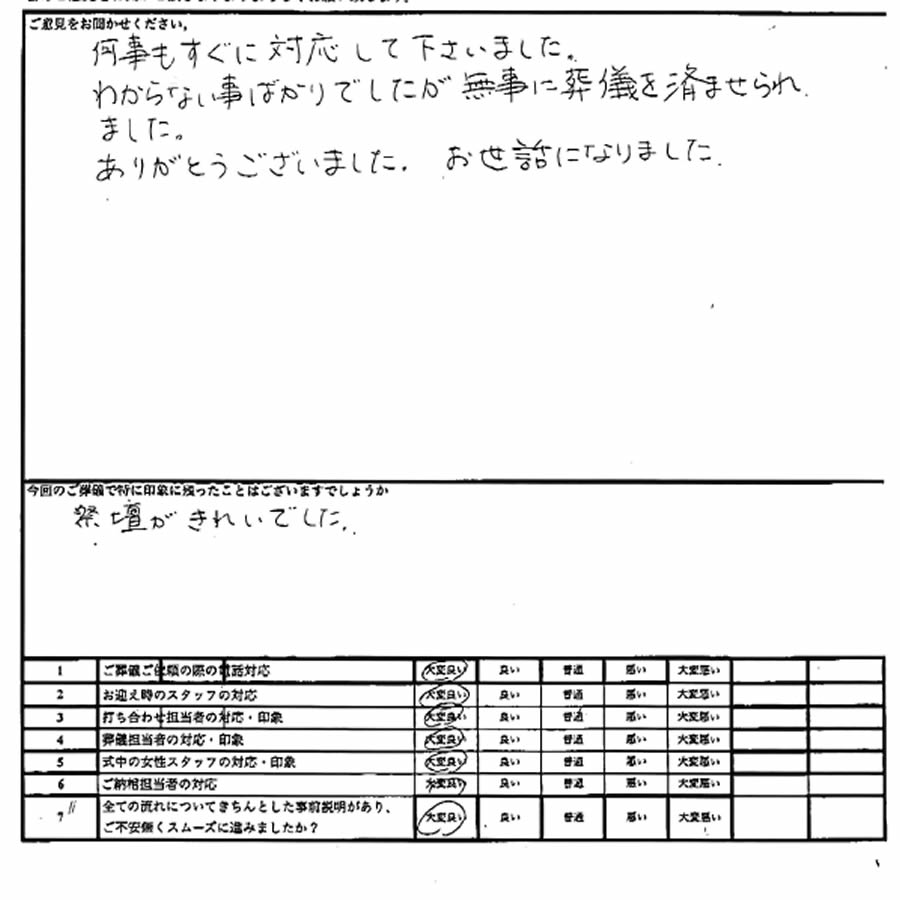 ご意見をお聞かせください。
何事もすぐに対応して下さいました。
わからない事ばかりでしたが無事に葬儀を済ませられ
ました。
ありがとうございました。 お世話になりました。
今回のご葬儀で特に印象に残ったことはございますでしょうか
祭壇がきれいでした。
1 ご葬儀ご依頼の際の電話対応 大変良い 良い 普通 悪い 大変悪い
2 お迎え時のスタッフの対応 大変良い 良い 普通 悪い 大変悪い
3 打ち合わせ担当者の対応・印象 大変良い 良い 普通 悪い 大変悪い
4 葬儀担当者の対応・印象 大変良い 良い 普通 悪い 大変悪い
5 式中の女性スタッフの対応・印象 大変良い 良い 普通 悪い 大変悪い
6 ご納棺担当者の対応 大変良い 良い 普通 悪い 大変悪い
7 全ての流れについてきちんとした事前説明があり、
ご不安無くスムーズに進みましたか？ 大変良い 良い 普通 悪い 大変悪い